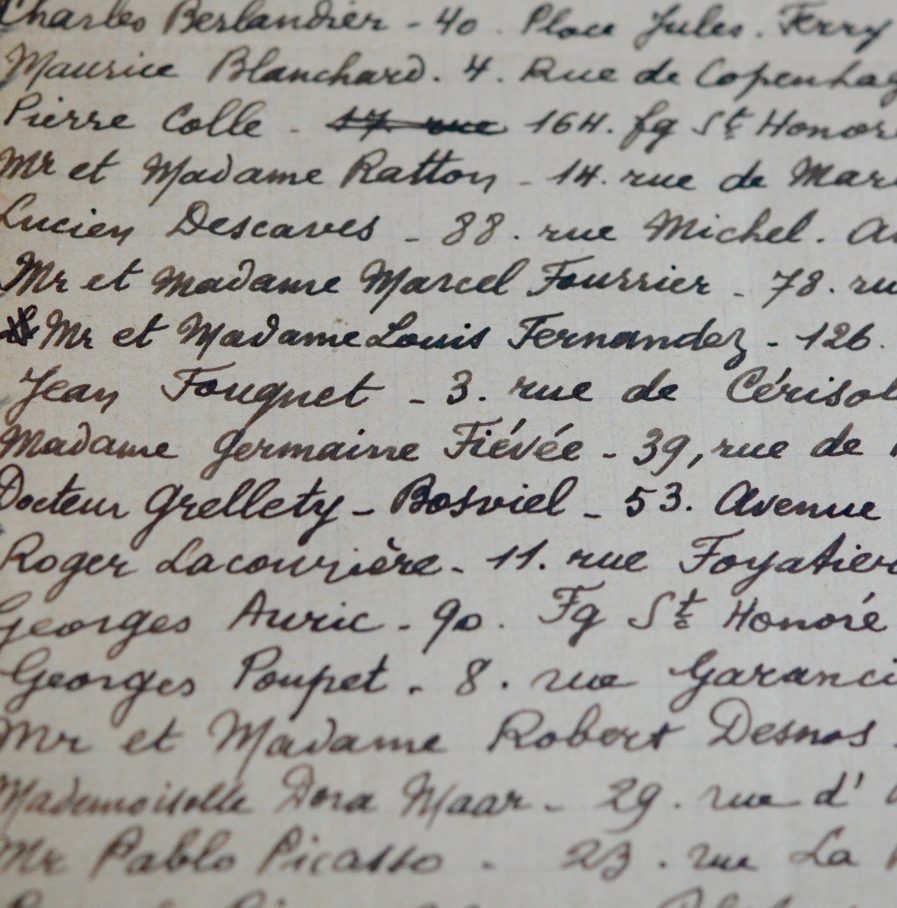 Charles Berlandier - 40. Place Jules. Ferry
Maurice Blanchard. 4. Rue de Copenhag
Pierre Colle - 17. rue 164. fg St Honoré
Mr et Madame Ratton - 14. rue de Mar
Lucien Descaves - 88. rue Michel. A
Mr et Madame Marcel Fourrier - 78. ru
Mr et Madame Louis Fernandez - 126.
Jean Fouquet - 3. rue de Cérisol
Madame Germaine Fiévée - 39, rue de
Docteur Grellety - Bosviel - 53. Avenue
Roger Lacourière - 11. rue Foyatier
Georges Auric - 90. Fg St Honoré
Georges Poupet. 8. rue Garanci
Mr et Madame Robert Desnos.
Mademoiselle Dora Maar - 29. rue d'
Mr Pablo Picasso - 23. rue La